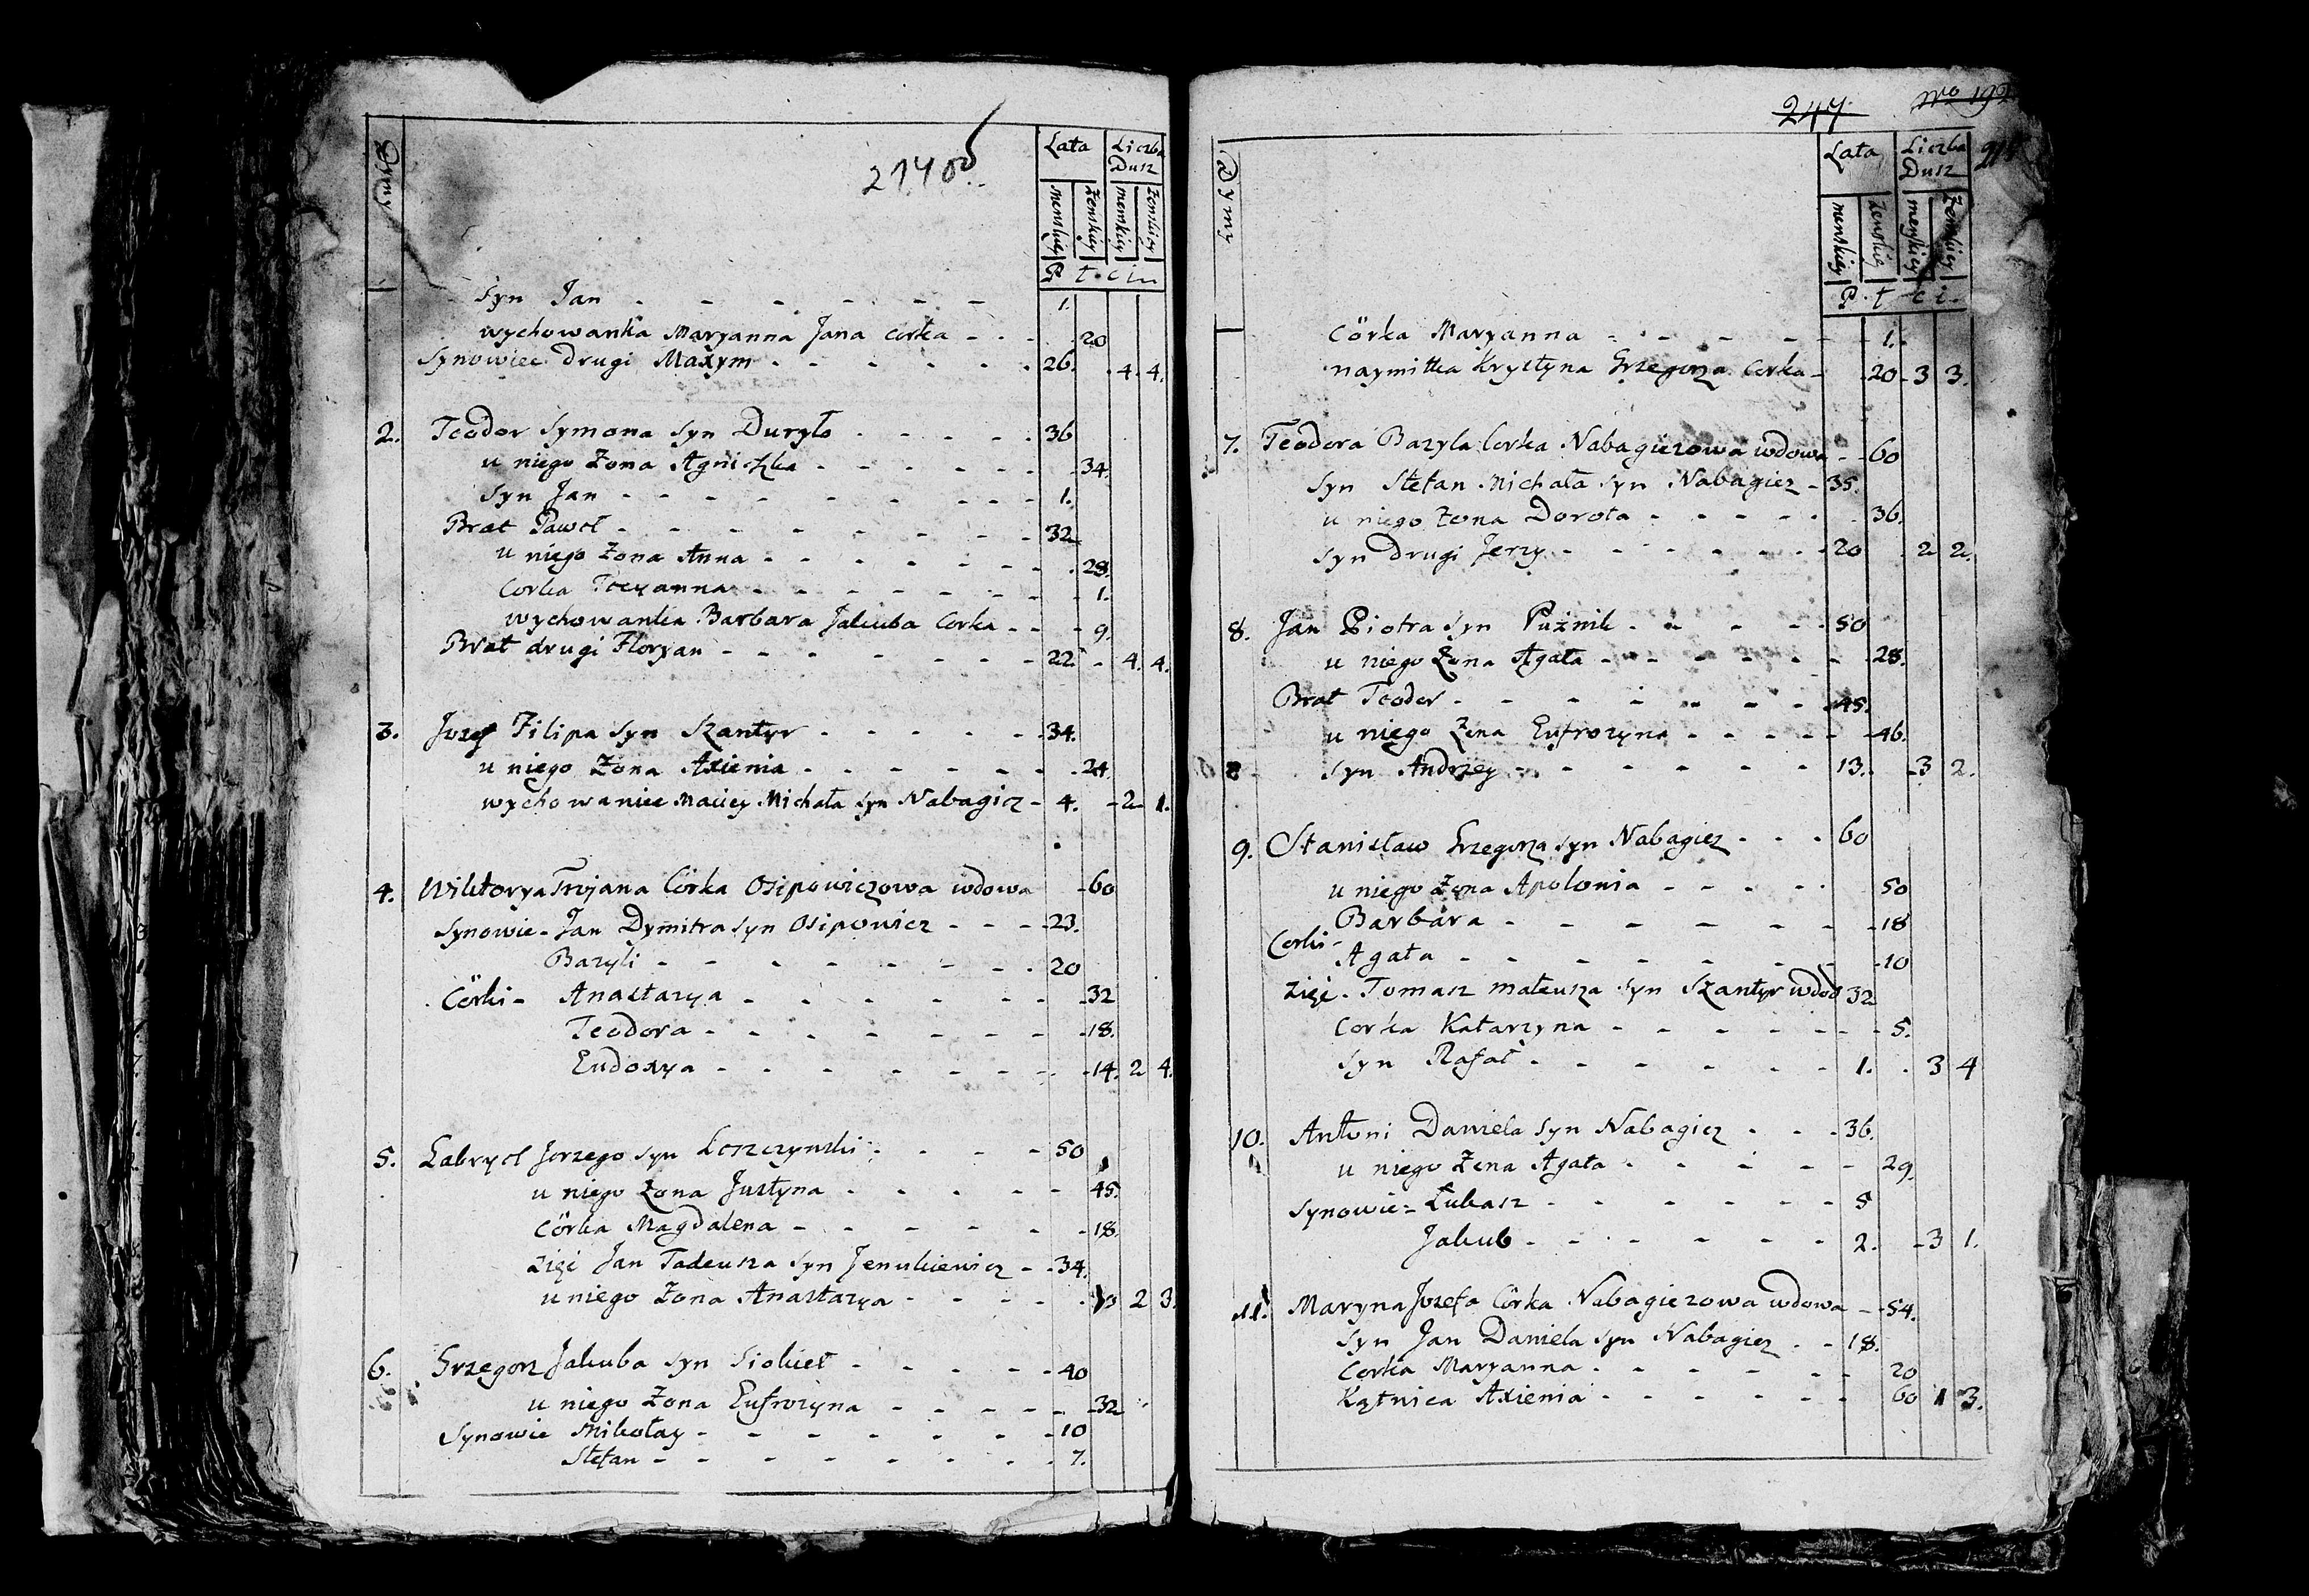 Dymy
Lata
Liczba Dusz
Menskiey
Żenskiey
menskiey
Żenskiey
P t c i
Syn Jan - - - - - - 1.
wychowanka Maryanna Jana corka - - - 20
Synowiec drugi Maxym - - - - - - 26. 4. 4.
2. Teodor Symona Syn Duryło - - - - - 36
u niego Żona Agniszka - - - - - - 34.
Syn Jan - - - - - - - - 1.
Brat Paweł - - - - - - - 32
u niego Żona Anna - - - - - - - 28.
Corka Tocyanna - - - - - - - 1.
wychowanka Barbara Jakuba Corka - - - 9.
Brat drugi Floryan - - - - - - - 22. - 4. 4.
3. Jozef Filipa Syn Szantyr - - - - - 34.
u niego Żona Axienia - - - - - - 24.
wychowaniec Maciey Michała Syn Nabagiez - 4. - 2 1.
4. Wiktorya Trojana Córka Osipowiczowa wdowa - 60
Synowie - Jan Dymitra Syn Osipowicz - - - 23.
Bazyli - - - - - - - 20
Córki - Anastazya - - - - - - - 32
Teodora - - - - - - - 18.
Eudoxya - - - - - - - 14. 2 4.
5. Gabryel Jerzego Syn Loszczynski - - - - 50
u niego Żona Justyna - - - - - 45.
Córka Magdalena - - - - - - 18.
zięć Jan Tadeusza Syn Jenukiewicz - - 34.
u niego Żona Anastazya - - - - - 2 3.
6. Grzegorz Jakuba Syn Siokiel - - - - - 40
u niego Żona Eufrozyna - - - - - - 32
Synowie Mikołay - - - - - - - 10
Stefan - - - - - - - 7.
247
No 192
Dymy
Lata
Liczba Dusz
menskiey
Żenskiey
menskiey
Żenskiey
P. t c i.
Córka Maryanna - - - - - - 1.
naymitka Krystyna Grzegorza Corka - - 20 - 3 3.
7. Teodora Bazyla Corka Nabagiezowa wdowa - - 60
Syn Stefan Michała Syn Nabagiez - 35.
u niego Żona Dorota - - - - - 36.
Syn drugi Jerzy - - - - - - - 20 2 2.
8. Jan Piotra Syn Puźnik - - - - - 50
u niego Żona Agata - - - - - - - 28.
Brat Teodor - - - - - - - 45.
u niego Żona Eufrozyna - - - - - - 46.
8 Syn Andrzey - - - - - - 13. - 3 2.
9. Stanisław Grzegorza Syn Nabagiez - - - 60
u niego Żona Apolonia - - - - - 50
Barbara - - - - - - - 18
Corki -
Agata - - - - - - - 10
zięć - Tomasz Mateusza Syn Szantyr wdod 32
Corka Katarzyna - - - - - - - 5.
Syn Rafał - - - - - - 1. . 3 4
10. Antoni Daniela Syn Nabagiez - - - 36.
u niego Żona Agata - - - - - 29.
Synowie - Łukasz - - - - - - 5
Jakub - - - - - - 2. - 3 1.
11. Maryna Jozefa Córka Nabagiezowa wdowa - - 54.
Syn Jan Daniela Syn Nabagiez - - 18.
Corka Maryanna - - - - - - 20
Kątnica Axienia - - - - - - 60 1 3.